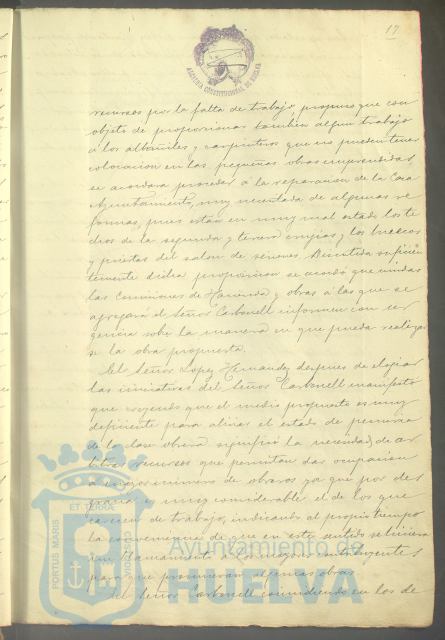 17
ALCALDIA CONSTITUCIONAL DE HUELVA
recursos por la falta de trabajo, propuso que con
objeto de proporcionar tambien algun trabajo
á los albañiles y carpinteros que no pueden tener
colocacion en las pequeñas obras emprendidas,
se acordara proceder á la reparacion de la Casa
Ayuntamiento, muy necesitada de algunas re
formas, pues estan en muy mal estado los te
chos de la segunda y tercera crujias y los huecos
y puertas del salon de sesiones. Discutida suficien
temente dicha proposicion se acordó que unidas
las Comisiones de Hacienda y obras á las que se
agregará el Señor Carbonell informen con ur
gencia sobre la manera en que pueda realizar
se la obra propuesta.
El Señor Lopez Hernandez despues de elogiar
las iniciativas del Señor Carbonell manifestó
que creyendo que el medio propuesto es muy
deficiente para aliviar el estado de penuria
de la clase obrera significó la necesidad de ar
bitrar recursos que permitan dar ocupacion
á mayor número de obreros ya que por des
gracia es muy considerable el de los que
carecen de trabajo, indicando al propio tiempo
la conveniencia de que en este sentido se hiciera
un llamamiento á los mayores contribuyentes
para que promuevan algunas obras.
El Señor Carbonell coincidiendo en los de
ET TERRAE
PORTUS MARIS
CUSTODIA
Ayuntamiento de
HUELVA